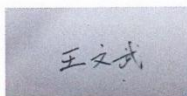 王文武